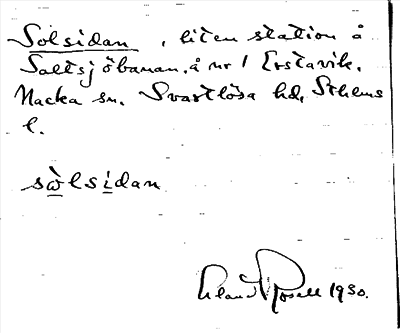 Solsidan, liten station å
Saltsjöbanan, å nr 1 Erstavik.
Nacka sn. Svartlösa hd, Sthlms
l.
sòlsidan
Rosell 1930.